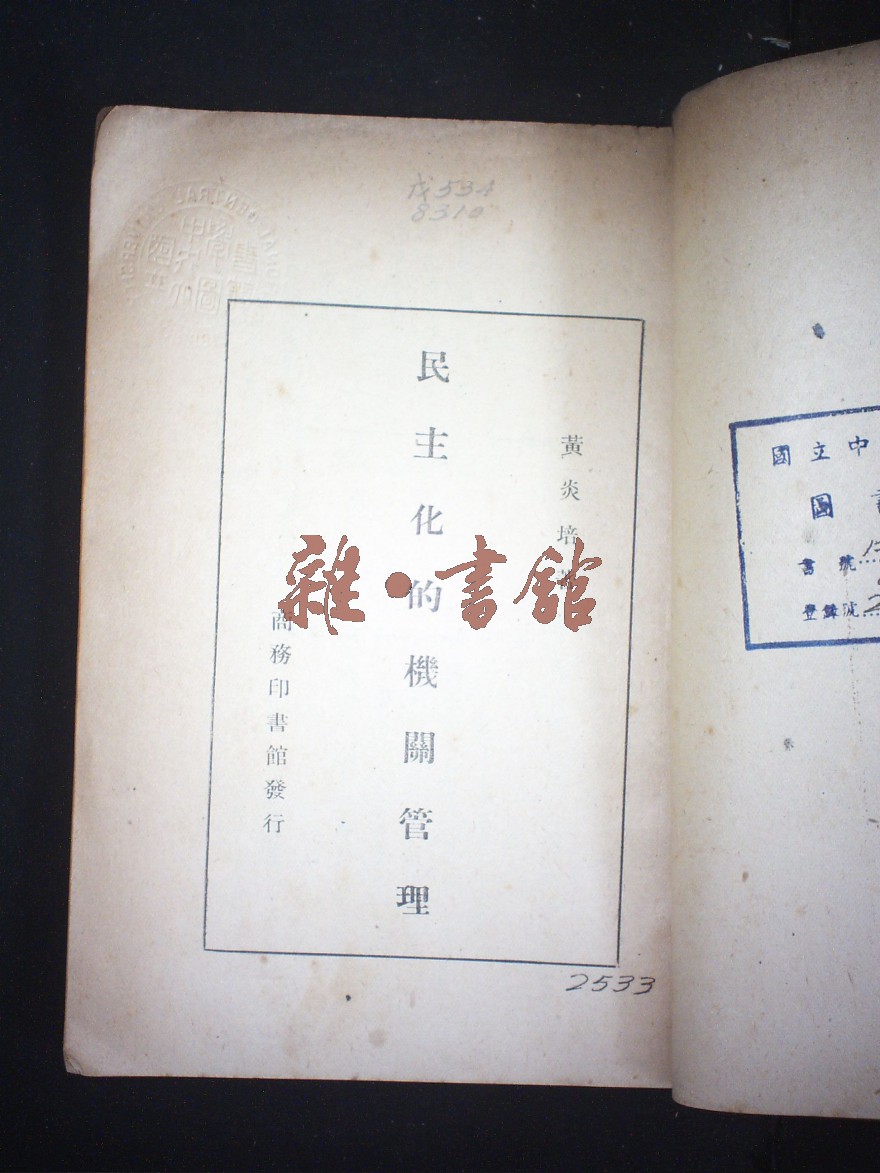 戊534
8310
黃炎培著
民主化的機關管理
商務印書館發行
雜·書館
2533
國立中
圖
書號
登錄號 2